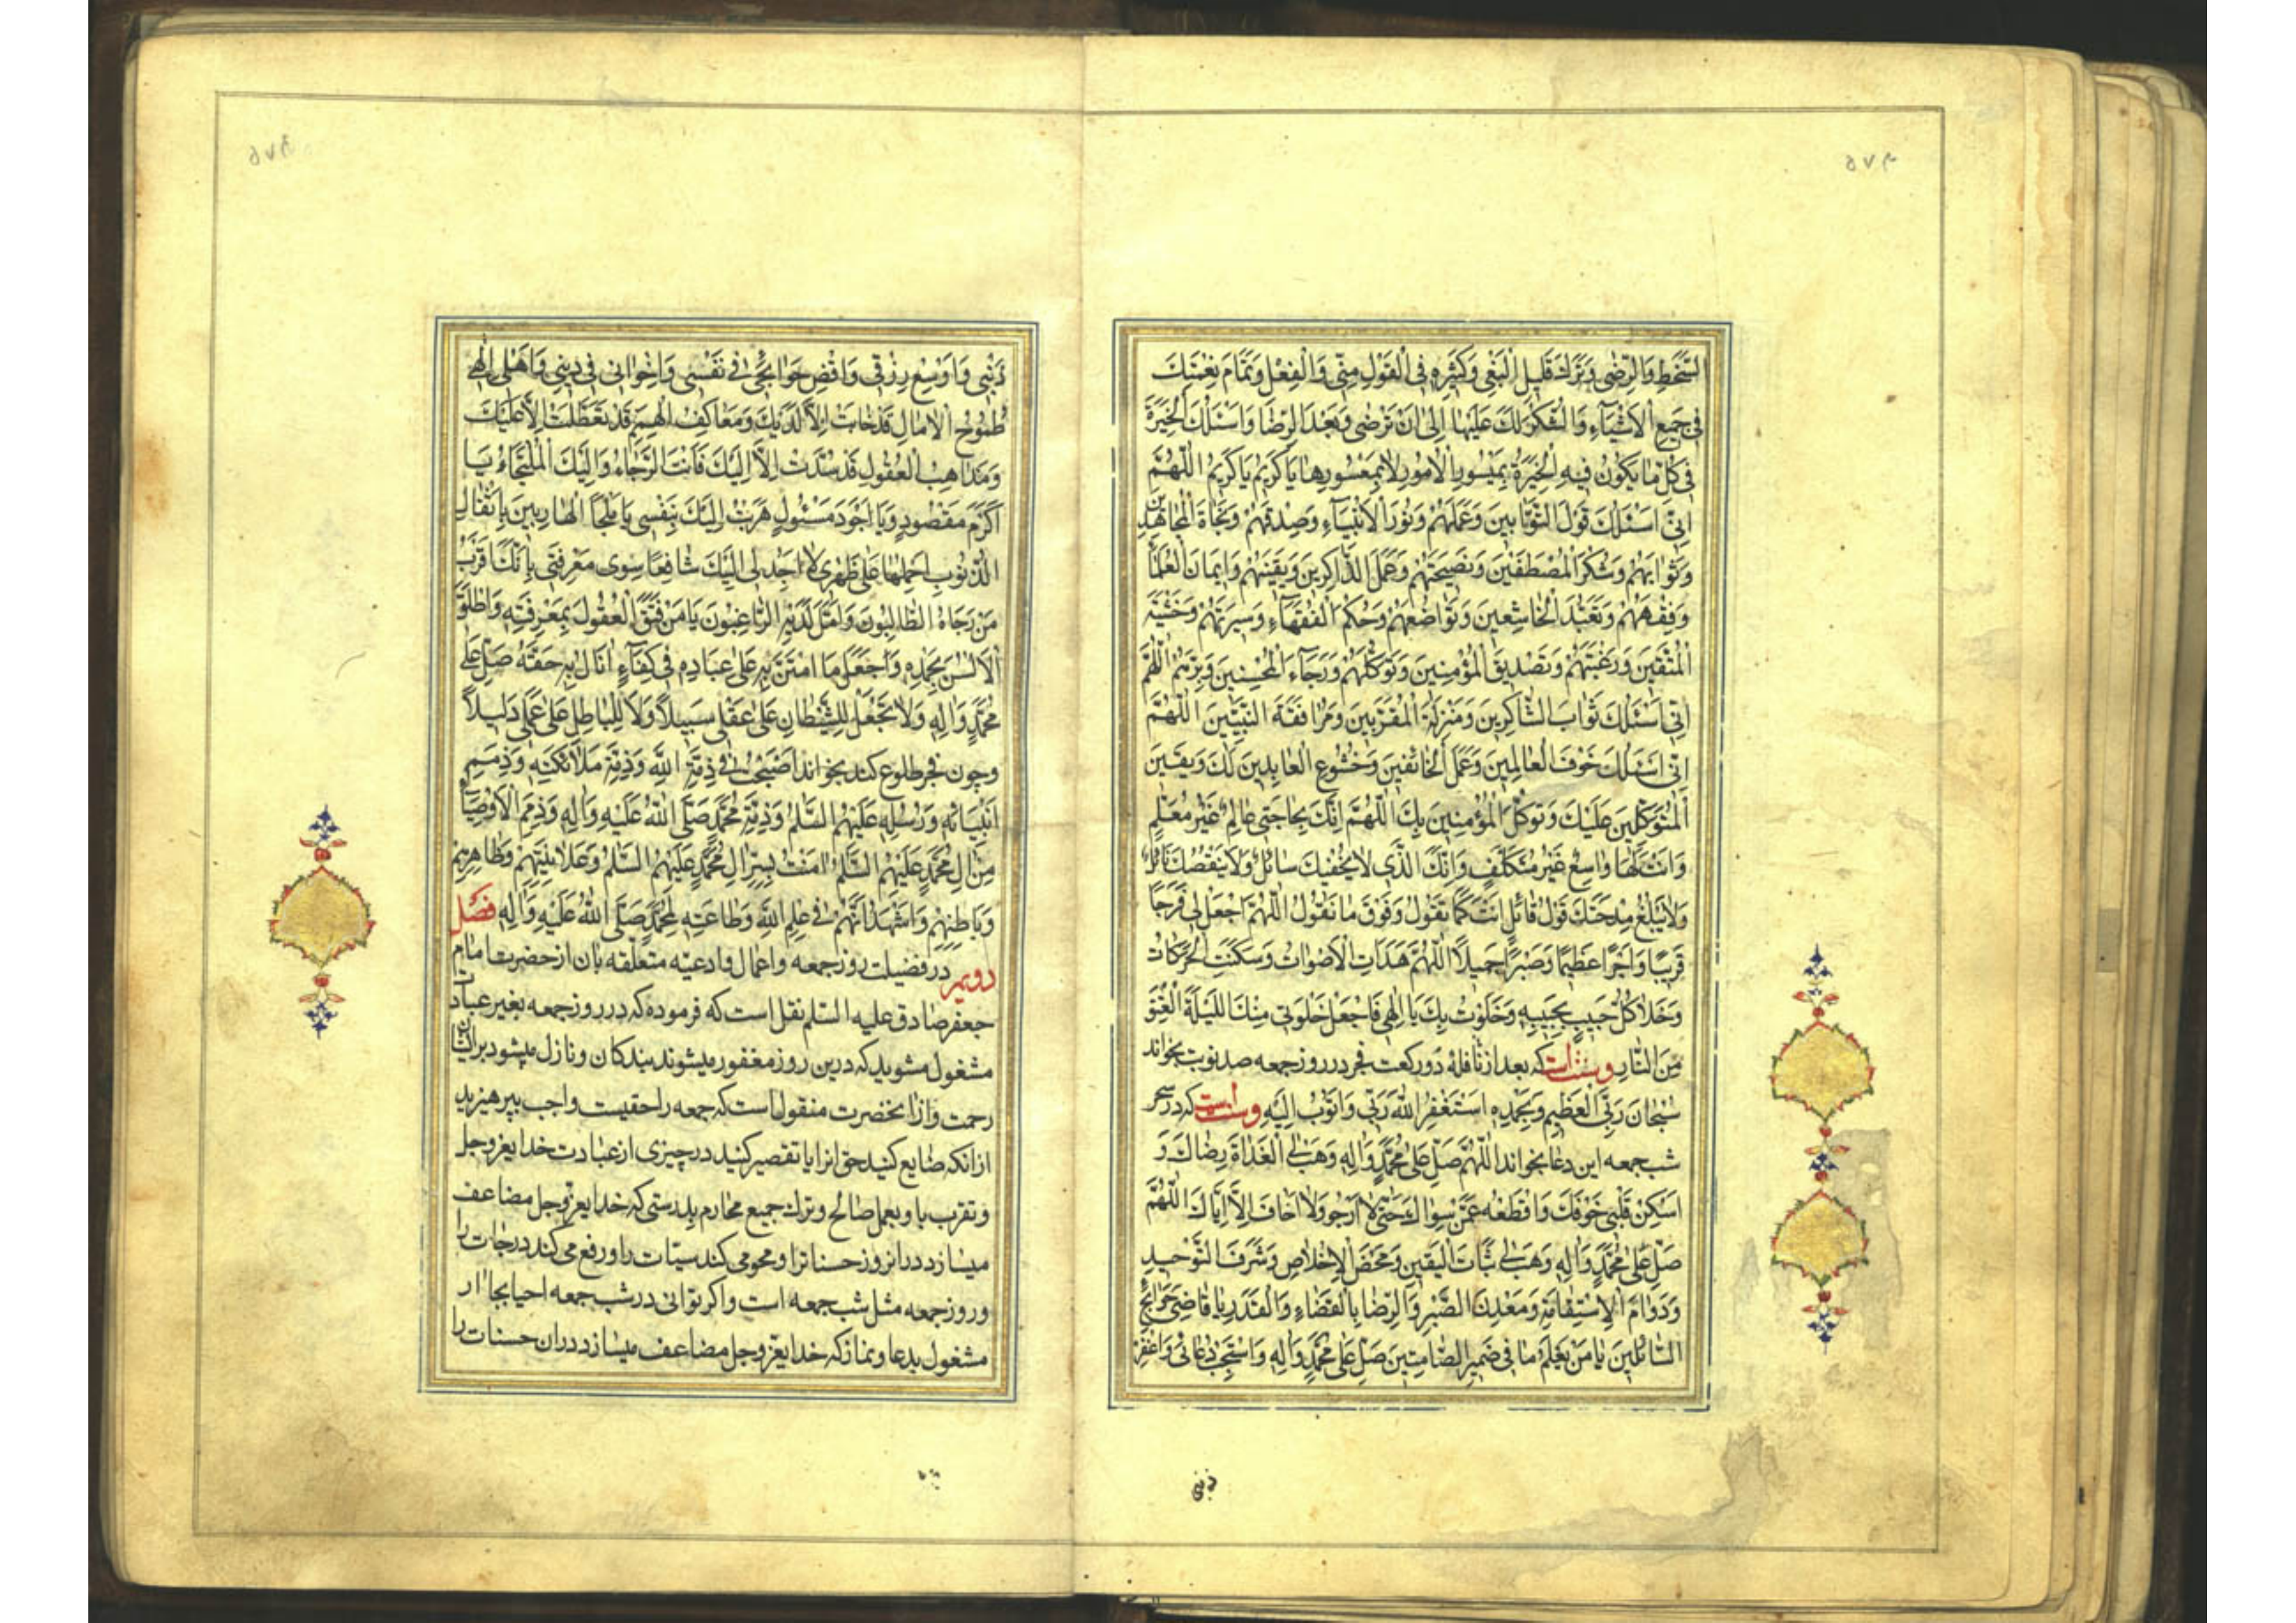 ۵۷۴
السَّخَطِ وَالرِّضٰى وَتَرْكَ قَلِيلِ الْبَغْىِ وَكَثِيرِهِ فِى الْقَوْلِ مِنّى وَالْفِعْلِ وَتَمَامَ نِعْمَتِكَ
فى جَميعِ الْاَشْيَآءِ وَالشُّكْرَ لَكَ عَلَيْهٰا اِلىٰ اَنْ تَرْضٰى وَبَعْدَ الرِّضَا وَاَسْئَلُكَ الْخِيَرَةَ
فى كُلِّ مٰا يَكُونُ فيهِ الْخِيَرَةُ بِمَيْسُورِ الْاُمُورِ لاٰ بِمَعْسُورِهٰا يَا كَريمُ يَا كَريمُ اَللّٰهُمَّ
اِنّى اَسْئَلُكَ قَوْلَ التَّوّٰابينَ وَعَمَلَهُمْ وَنُورَ الْاَنْبِيَآءِ وَصِدْقَهُمْ وَنَجٰاةَ الْمُجٰاهِدينَ
وَثَوٰابَهُمْ وَشُكْرَ الْمُصْطَفَيْنَ وَنَصيحَتَهُمْ وَعَمَلَ الذّٰاكِرينَ وَيَقينَهُمْ وَايمَانَ الْعُلَمٰآءِ
وَفِقْهَهُمْ وَتَعَبُّدَ الْخٰاشِعينَ وَتَوٰاضُعَهُمْ وَحُكْمَ الْفُقَهَآءِ وَسيرَتَهُمْ وَخَشْيَةَ
الْمُتَّقينَ وَرَغْبَتَهُمْ وَتَصْديقَ الْمُؤْمِنينَ وَتَوَكُّلَهُمْ وَرَجَآءَ الْمُحْسِنينَ وَبِرَّهُمْ اَللّٰهُمَّ
اِنّى اَسْئَلُكَ ثَوٰابَ الشّٰاكِرينَ وَمَنْزِلَةَ الْمُقَرَّبينَ وَمُرٰافَقَةَ النَّبِيّينَ اَللّٰهُمَّ
اِنّى اَسْئَلُكَ خَوْفَ الْعٰالِمينَ وَعَمَلَ الْخٰائِفينَ وَخُشُوعَ الْعٰابِدينَ لَكَ وَيَقينَ
الْمُتَوَكِّلينَ عَلَيْكَ وَتَوَكُّلَ الْمُؤْمِنينَ بِكَ اَللّٰهُمَّ اِنَّكَ بِحٰاجَتى عٰالِمٌ غَيْرُ مُعَلَّمٍ
وَاَنْتَ لَهٰا وٰاسِعٌ غَيْرُ مُتَكَلِّفٍ وَاَنْتَ الَّذى لاٰ يُحْفيكَ سٰائِلٌ وَلاٰ يَنْقُصُكَ نٰائِلٌ
وَلاٰ يَبْلُغُ مِدْحَتَكَ قَوْلُ قٰائِلٍ اَنْتَ كَمٰا تَقُولُ وَفَوْقَ مٰا نَقُولُ اَللّٰهُمَّ اجْعَلْ لى فَرَجًا
قَريبًا وَاَجْرًا عَظيمًا وَصَبْرًا جَميلاً اَللّٰهُمَّ هَدَأَتِ الْاَصْوٰاتُ وَسَكَنَتِ الْحَرَكٰاتُ
وَخَلاٰ كُلُّ حَبيبٍ بِحَبيبِهِ وَخَلَوْتُ بِكَ يَا اِلٰهى فَاجْعَلْ خَلْوَتى مِنْكَ اللَّيْلَةَ الْعِتْقَ
مِنَ النّٰارِ وسنتست كه بعد از نافلهٔ دو ركعت فجر در روز جمعه صد نوبت بخواند
سُبْحٰانَ رَبِّىَ الْعَظيمِ وَبِحَمْدِهِ اَسْتَغْفِرُ اللهَ رَبّى وَاَتُوبُ اِلَيْهِ وسنتست كه در سحر
شب جمعه اين دعا بخواند اَللّٰهُمَّ صَلِّ عَلىٰ مُحَمَّدٍ وَاٰلِهِ وَهَبْ لِىَ الْغَدٰاةَ رِضٰاكَ وَ
اَسْكِنْ قَلْبى خَوْفَكَ وَاقْطَعْهُ عَمَّنْ سِوٰاكَ حَتّىٰ لاٰ اَرْجُوَ وَلاٰ اَخٰافَ اِلاّٰ اِيّٰاكَ اَللّٰهُمَّ
صَلِّ عَلىٰ مُحَمَّدٍ وَاٰلِهِ وَهَبْ لى ثَبٰاتَ الْيَقينِ وَمَحْضَ الْاِخْلاٰصِ وَشَرَفَ التَّوْحيدِ
وَدَوٰامَ الْاِسْتِقٰامَةِ وَمَعْدِنَ الصَّبْرِ وَالرِّضٰا بِالْقَضٰاءِ وَالْقَدَرِ يٰا قٰاضِىَ حَوٰائِجِ
السّٰائِلينَ يٰا مَنْ يَعْلَمُ مٰا فى ضَميرِ الصّٰامِتينَ صَلِّ عَلىٰ مُحَمَّدٍ وَاٰلِهِ وَاسْتَجِبْ دُعٰائى وَاغْفِرْ
ذنبى
ذَنْبى وَاَوْسِعْ رِزْقى وَاقْضِ حَوٰائِجى فى نَفْسى وَاِخْوٰانى فى دينى وَاَهْلى اِلٰهى
طُمُوحُ الْاٰمٰالِ قَدْ خٰابَتْ اِلاّٰ لَدَيْكَ وَمَعٰاكِفُ الْهِمَمِ قَدْ تَعَطَّلَتْ اِلاّٰ عَلَيْكَ
وَمَذٰاهِبُ الْعُقُولِ قَدْ سُدَّتْ اِلاّٰ اِلَيْكَ فَاَنْتَ الرَّجٰاءُ وَاِلَيْكَ الْمُلْتَجَاُ يٰا
اَكْرَمَ مَقْصُودٍ وَيٰا اَجْوَدَ مَسْئُولٍ هَرَبْتُ اِلَيْكَ بِنَفْسى يٰا مَلْجَاَ الْهٰارِبينَ بِاَثْقٰالِ
الذُّنُوبِ اَحْمِلُهٰا عَلىٰ ظَهْرى لاٰ اَجِدُ لى اِلَيْكَ شٰافِعًا سِوىٰ مَعْرِفَتى بِاَنَّكَ اَقْرَبُ
مَنْ رَجٰاهُ الطّٰالِبُونَ وَاَمَّلَ لَدَيْهِ الرّٰاغِبُونَ يٰا مَنْ فَتَقَ الْعُقُولَ بِمَعْرِفَتِهِ وَاَطْلَقَ
الْاَلْسُنَ بِحَمْدِهِ وَجَعَلَ مَا امْتَنَّ بِهِ عَلىٰ عِبٰادِهِ فى كِفٰآءٍ اَنٰالَ بِهِ حَقَّهُ صَلِّ عَلىٰ
مُحَمَّدٍ وَاٰلِهِ وَلاٰ تَجْعَلْ لِلشَّيْطٰانِ عَلىٰ عَقْلى سَبيلاً وَلاٰ لِلْبٰاطِلِ عَلىٰ عَمَلى دَليلاً
وچون فجر طلوع كند بخواند اَصْبَحْتُ فى ذِمَّةِ اللهِ وَذِمَّةِ مَلاٰئِكَتِهِ وَذِمَمِ
اَنْبِيٰائِهِ وَرُسُلِهِ عَلَيْهِمُ السَّلٰمُ وَذِمَّةِ مُحَمَّدٍ صَلَّى اللهُ عَلَيْهِ وَاٰلِهِ وَذِمَمِ الْاَوْصِيٰآءِ
مِنْ اٰلِ مُحَمَّدٍ عَلَيْهِمُ السَّلٰمُ اٰمَنْتُ بِسِرِّ اٰلِ مُحَمَّدٍ عَلَيْهِمُ السَّلٰمُ وَعَلاٰنِيَتِهِمْ وَظٰاهِرِهِمْ
وَبٰاطِنِهِمْ وَاَشْهَدُ اَنَّهُمْ فى عِلْمِ اللهِ وَطٰاعَتِهِ لِمُحَمَّدٍ صَلَّى اللهُ عَلَيْهِ وَاٰلِهِ فصل
دويم در فضيلت روز جمعه واعمال وادعيّه متعلّقه بان از حضرت امام
جعفر صادق عليه السّلم نقل است كه فرموده كه در روز جمعه بغير عبادت
مشغول مشويد كه درين روز مغفور ميشوند بندكان ونازل ميشود برايشان
رحمت واز انحضرت منقول است كه جمعه را حقيست واجب بپرهيزيد
از انكه ضايع كنيد حق انرا يا تقصير كنيد در چيزى از عبادت خدايعزوجل
وتقرب باو بعمل صالح وترك جميع محارم بدرستى كه خدايعزوجل مضاعف
ميسازد در انروز حسناترا ومحو مى كند سيّات را ورفع مى كند درجات را
وروز جمعه مثل شب جمعه است واكر توانى در شب جمعه احيا بجا ار
مشغول بدعا ونماز كه خدايعزوجل مضاعف ميسازد دران حسنات را